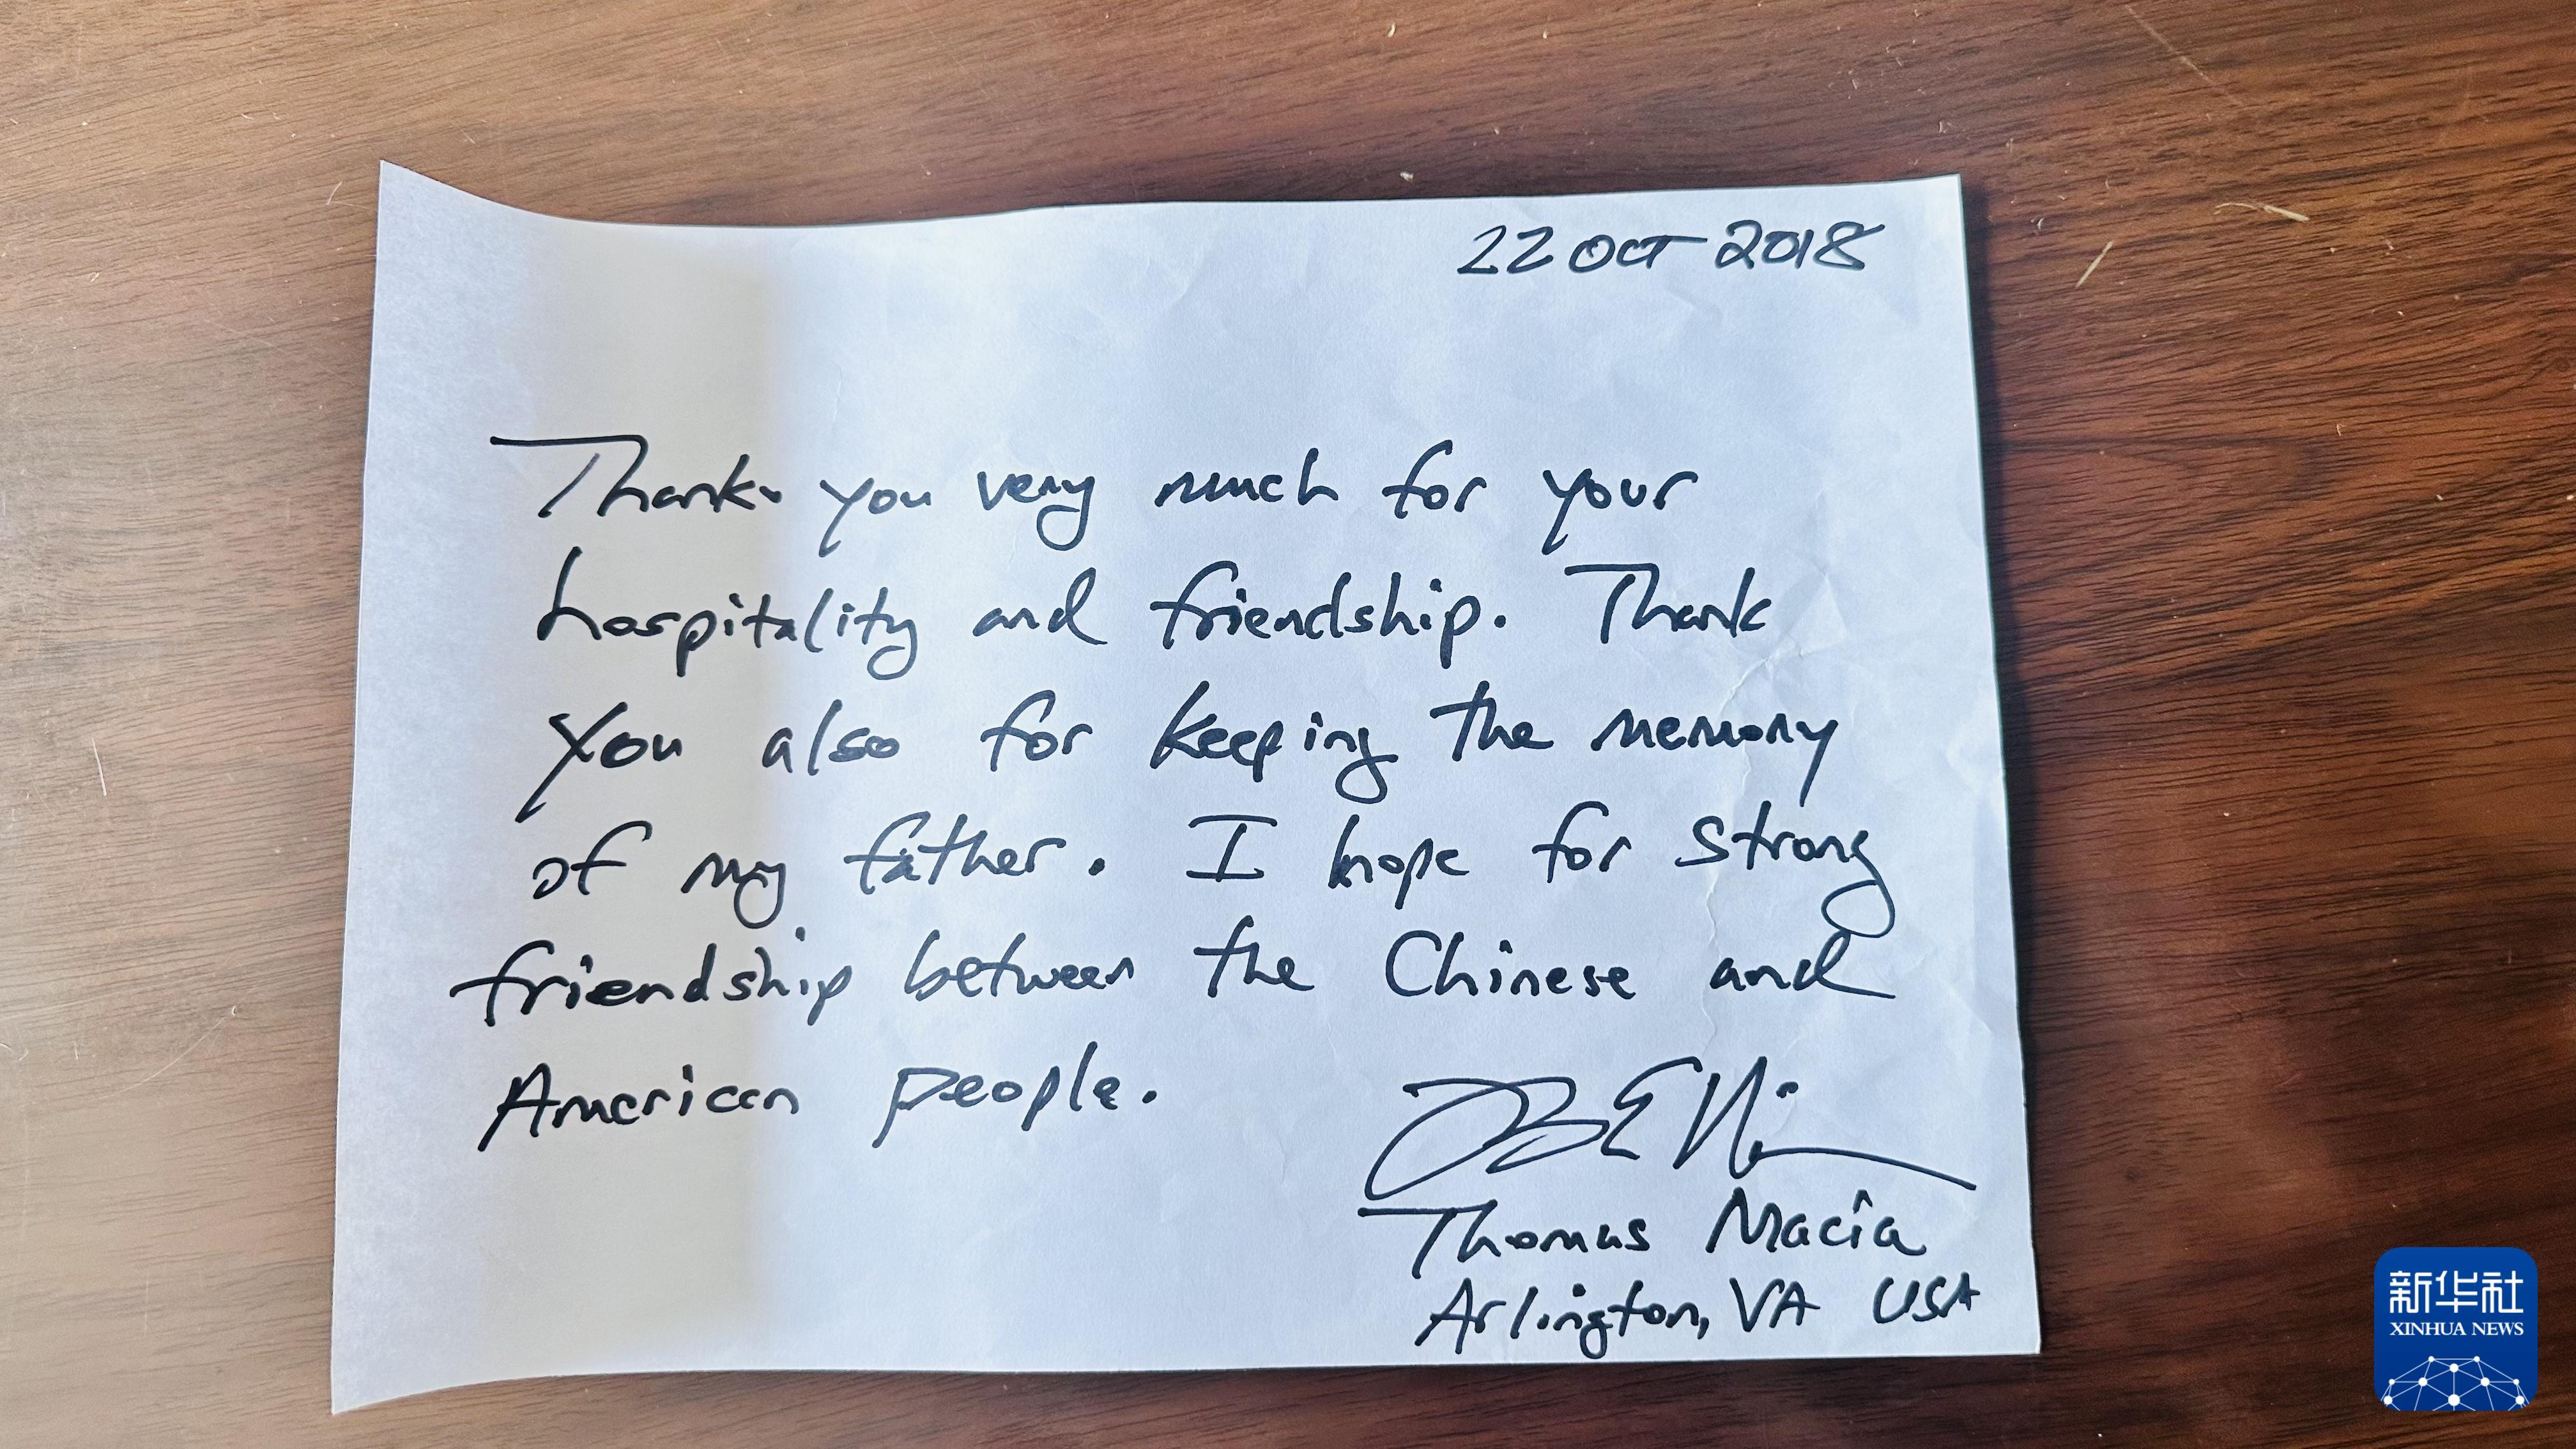 22 OCT 2018
Thank you very much for your
hospitality and friendship. Thank
you also for keeping the memory
of my father. I hope for strong
friendship between the Chinese and
American people.
Thomas Macia
Arlington, VA USA
新华社
XINHUA NEWS